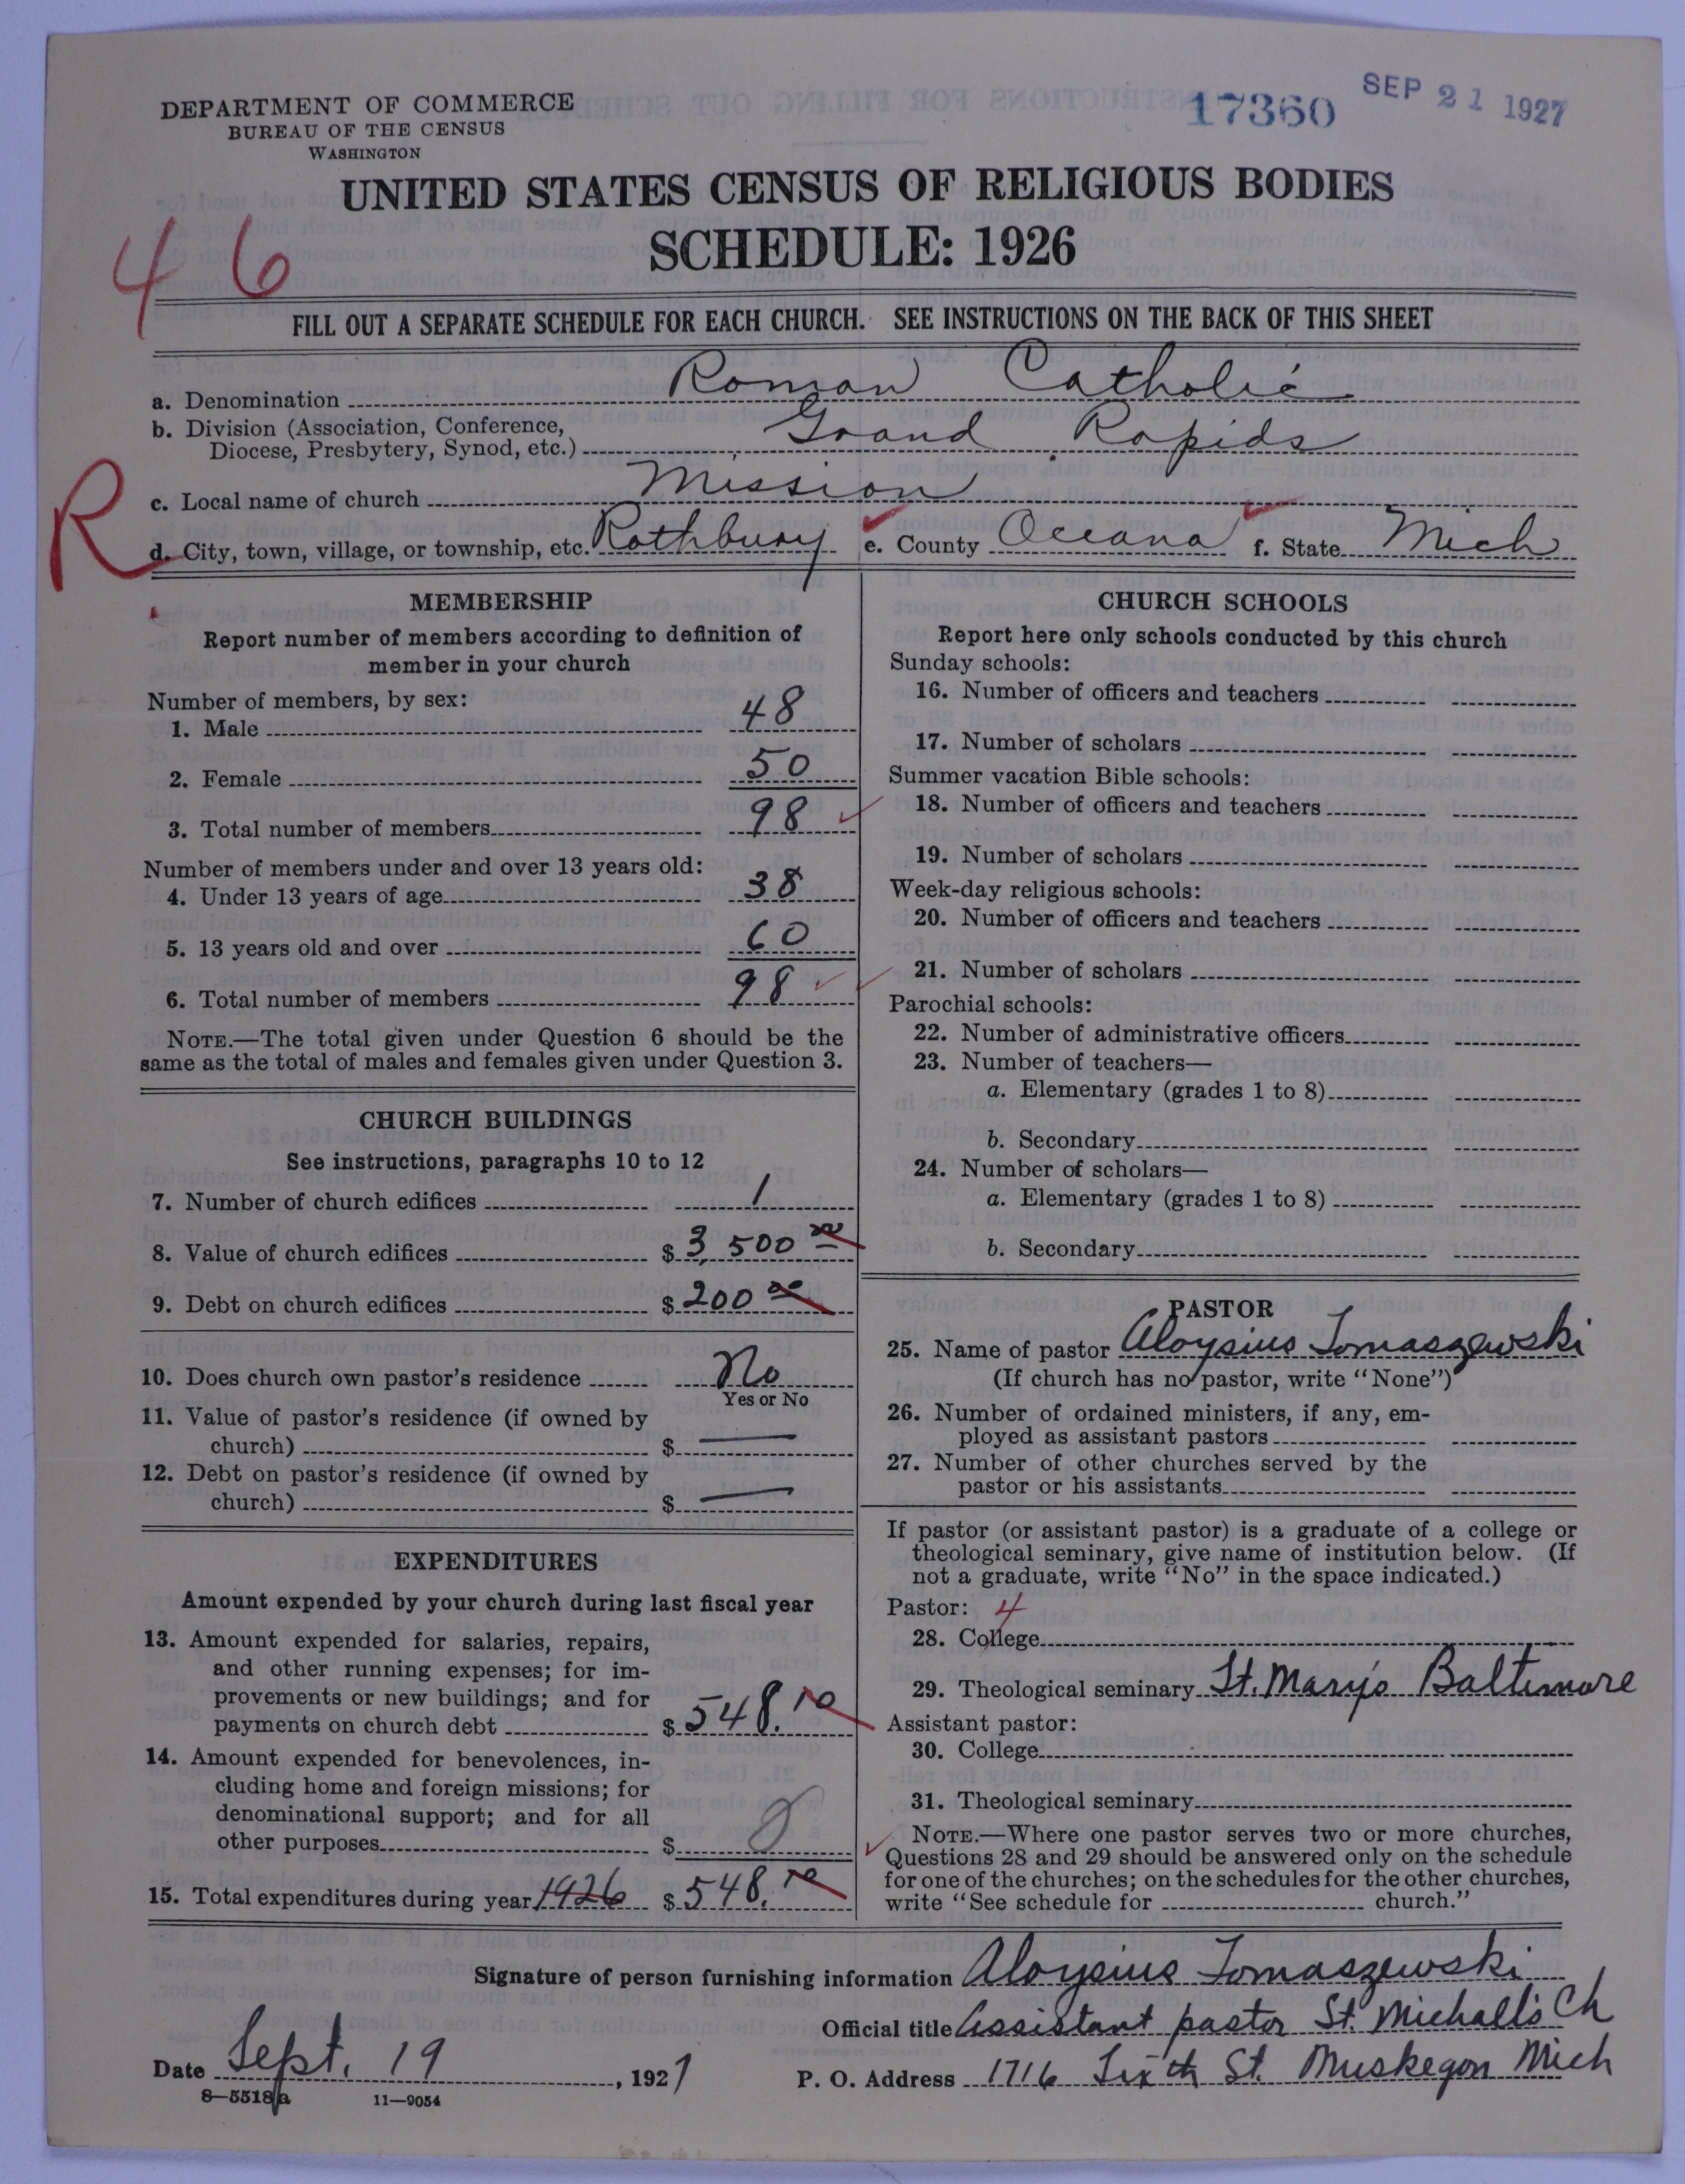 DEPARTMENT OF COMMERCE
BUREAU OF THE CENSUS
WASHINGTON
17360 SEP 21 1927
UNITED STATES CENSUS OF RELIGIOUS BODIES
SCHEDULE: 1926
46
FILL OUT A SEPARATE SCHEDULE FOR EACH CHURCH. SEE INSTRUCTIONS ON THE BACK OF THIS SHEET
a. Denomination Roman Catholic
b. Division (Association, Conference,
Diocese, Presbytery, Synod, etc.) Grand Rapids
R
c. Local name of church Mission
d. City, town, village, or township, etc. Rothbury e. County Oceana f. State Mich
MEMBERSHIP
Report number of members according to definition of
member in your church
Number of members, by sex:
1. Male 48
2. Female 50
3. Total number of members 98
Number of members under and over 13 years old:
4. Under 13 years of age 38
5. 13 years old and over 60
6. Total number of members 98
NOTE.—The total given under Question 6 should be the
same as the total of males and females given under Question 3.
CHURCH BUILDINGS
See instructions, paragraphs 10 to 12
7. Number of church edifices 1
8. Value of church edifices $ 3,500 00
9. Debt on church edifices $ 200 00
10. Does church own pastor's residence No
Yes or No
11. Value of pastor's residence (if owned by
church) $ —
12. Debt on pastor's residence (if owned by
church) $ —
EXPENDITURES
Amount expended by your church during last fiscal year
13. Amount expended for salaries, repairs,
and other running expenses; for im-
provements or new buildings; and for
payments on church debt $ 548.10
14. Amount expended for benevolences, in-
cluding home and foreign missions; for
denominational support; and for all
other purposes $ 0
15. Total expenditures during year 1926 $ 548.10
CHURCH SCHOOLS
Report here only schools conducted by this church
Sunday schools:
16. Number of officers and teachers
17. Number of scholars
Summer vacation Bible schools:
18. Number of officers and teachers
19. Number of scholars
Week-day religious schools:
20. Number of officers and teachers
21. Number of scholars
Parochial schools:
22. Number of administrative officers
23. Number of teachers—
a. Elementary (grades 1 to 8)
b. Secondary
24. Number of scholars—
a. Elementary (grades 1 to 8)
b. Secondary
PASTOR
25. Name of pastor Aloysius Tomaszewski
(If church has no pastor, write "None")
26. Number of ordained ministers, if any, em-
ployed as assistant pastors
27. Number of other churches served by the
pastor or his assistants
If pastor (or assistant pastor) is a graduate of a college or
theological seminary, give name of institution below. (If
not a graduate, write "No" in the space indicated.)
Pastor: 4
28. College
29. Theological seminary St. Mary's Baltimore
Assistant pastor:
30. College
31. Theological seminary
NOTE.—Where one pastor serves two or more churches,
Questions 28 and 29 should be answered only on the schedule
for one of the churches; on the schedules for the other churches,
write "See schedule for church."
Signature of person furnishing information Aloysius Tomaszewski
Official title Assistant pastor St. Michall's Ch
Date Sept. 19, 1927 P. O. Address 1716 Sixth St. Muskegon Mich
8—5518a 11—9054